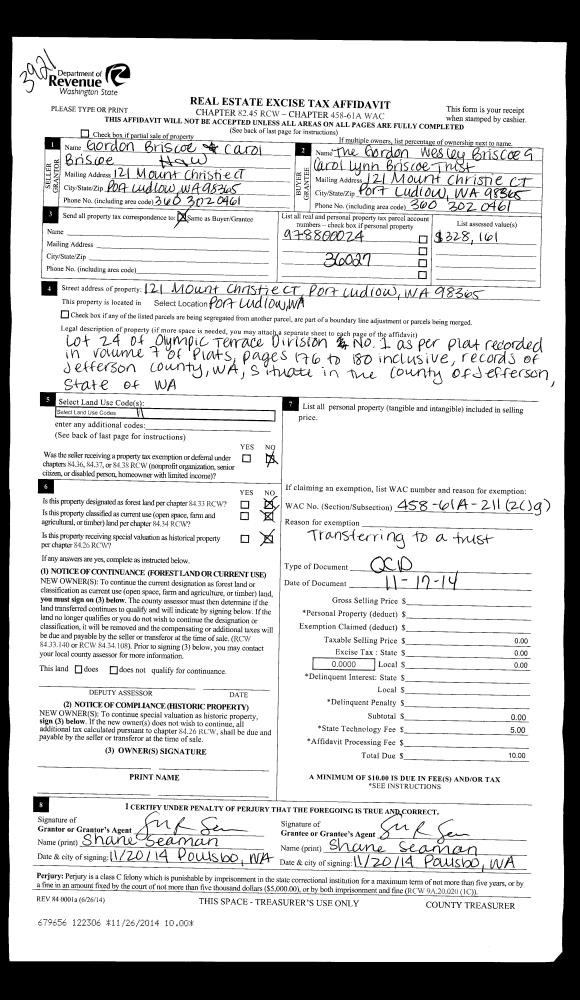 3921
Department of
Revenue
Washington State
REAL ESTATE EXCISE TAX AFFIDAVIT
PLEASE TYPE OR PRINT
CHAPTER 82.45 RCW – CHAPTER 458-61A WAC
This form is your receipt
when stamped by cashier.
THIS AFFIDAVIT WILL NOT BE ACCEPTED UNLESS ALL AREAS ON ALL PAGES ARE FULLY COMPLETED
(See back of last page for instructions)
Check box if partial sale of property
If multiple owners, list percentage of ownership next to name.
1
SELLER
GRANTOR
Name Gordon Briscoe & Carol
Briscoe H&W
Mailing Address 121 Mount Christie CT
City/State/Zip Port Ludlow, WA 98365
Phone No. (including area code) 360 302 0461
2
BUYER
GRANTEE
Name The Gordon Wesley Briscoe &
Carol Lynn Briscoe Trust
Mailing Address 121 Mount Christie CT
City/State/Zip Port Ludlow, WA 98365
Phone No. (including area code) 360 302 0461
3
Send all property tax correspondence to: Same as Buyer/Grantee
Name
Mailing Address
City/State/Zip
Phone No. (including area code)
List all real and personal property tax parcel account
numbers – check box if personal property
978800024
36027
List assessed value(s)
$328,161
4
Street address of property: 121 Mount Christie CT, Port Ludlow, WA 98365
This property is located in Select Location Port Ludlow, WA
Check box if any of the listed parcels are being segregated from another parcel, are part of a boundary line adjustment or parcels being merged.
Legal description of property (if more space is needed, you may attach a separate sheet to each page of the affidavit)
Lot 24 of Olympic Terrace Division No. 1 as per plat recorded
in volume 7 of Plats, pages 176 to 180 inclusive, records of
Jefferson County, WA, Situate in the County of Jefferson,
State of WA
5
Select Land Use Code(s):
Select Land Use Codes 11
enter any additional codes:
(See back of last page for instructions)
YES NO
Was the seller receiving a property tax exemption or deferral under
chapters 84.36, 84.37, or 84.38 RCW (nonprofit organization, senior
citizen, or disabled person, homeowner with limited income)?
6
YES NO
Is this property designated as forest land per chapter 84.33 RCW?
Is this property classified as current use (open space, farm and
agricultural, or timber) land per chapter 84.34 RCW?
Is this property receiving special valuation as historical property
per chapter 84.26 RCW?
If any answers are yes, complete as instructed below.
(1) NOTICE OF CONTINUANCE (FOREST LAND OR CURRENT USE)
NEW OWNER(S): To continue the current designation as forest land or
classification as current use (open space, farm and agriculture, or timber) land,
you must sign on (3) below. The county assessor must then determine if the
land transferred continues to qualify and will indicate by signing below. If the
land no longer qualifies or you do not wish to continue the designation or
classification, it will be removed and the compensating or additional taxes will
be due and payable by the seller or transferor at the time of sale. (RCW
84.33.140 or RCW 84.34.108). Prior to signing (3) below, you may contact
your local county assessor for more information.
This land does does not qualify for continuance.
DEPUTY ASSESSOR DATE
(2) NOTICE OF COMPLIANCE (HISTORIC PROPERTY)
NEW OWNER(S): To continue special valuation as historic property,
sign (3) below. If the new owner(s) does not wish to continue, all
additional tax calculated pursuant to chapter 84.26 RCW, shall be due and
payable by the seller or transferor at the time of sale.
(3) OWNER(S) SIGNATURE
PRINT NAME
7
List all personal property (tangible and intangible) included in selling
price.
If claiming an exemption, list WAC number and reason for exemption:
WAC No. (Section/Subsection) 458-61A-211(2)(g)
Reason for exemption
Transferring to a trust
Type of Document QCD
Date of Document 11-17-14
Gross Selling Price $
*Personal Property (deduct) $
Exemption Claimed (deduct) $
Taxable Selling Price $ 0.00
Excise Tax : State $ 0.00
0.0000 Local $ 0.00
*Delinquent Interest: State $
Local $
*Delinquent Penalty $
Subtotal $ 0.00
*State Technology Fee $ 5.00
*Affidavit Processing Fee $
Total Due $ 10.00
A MINIMUM OF $10.00 IS DUE IN FEE(S) AND/OR TAX
*SEE INSTRUCTIONS
8
I CERTIFY UNDER PENALTY OF PERJURY THAT THE FOREGOING IS TRUE AND CORRECT.
Signature of
Grantor or Grantor's Agent
Name (print) Shane Seaman
Date & city of signing: 11/20/14 Poulsbo, WA
Signature of
Grantee or Grantee's Agent
Name (print) Shane Seaman
Date & city of signing: 11/20/14 Poulsbo, WA
Perjury: Perjury is a class C felony which is punishable by imprisonment in the state correctional institution for a maximum term of not more than five years, or by
a fine in an amount fixed by the court of not more than five thousand dollars ($5,000.00), or by both imprisonment and fine (RCW 9A.20.020 (1C)).
REV 84 0001a (6/26/14)
THIS SPACE - TREASURER'S USE ONLY
COUNTY TREASURER
679656 122306 *11/26/2014 10.00*